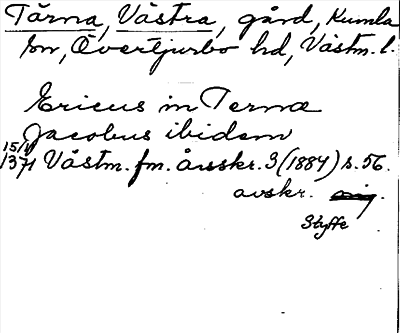 Tärna, Västra, gård, Kumla
sn, Övertjurbo hd, Västm. l.
Ericus in Ternæ
Jacobus ibidem
15/1
1371 Västm. fm. årsskr. 3 (1884) s. 56.
avskr.
Styffe